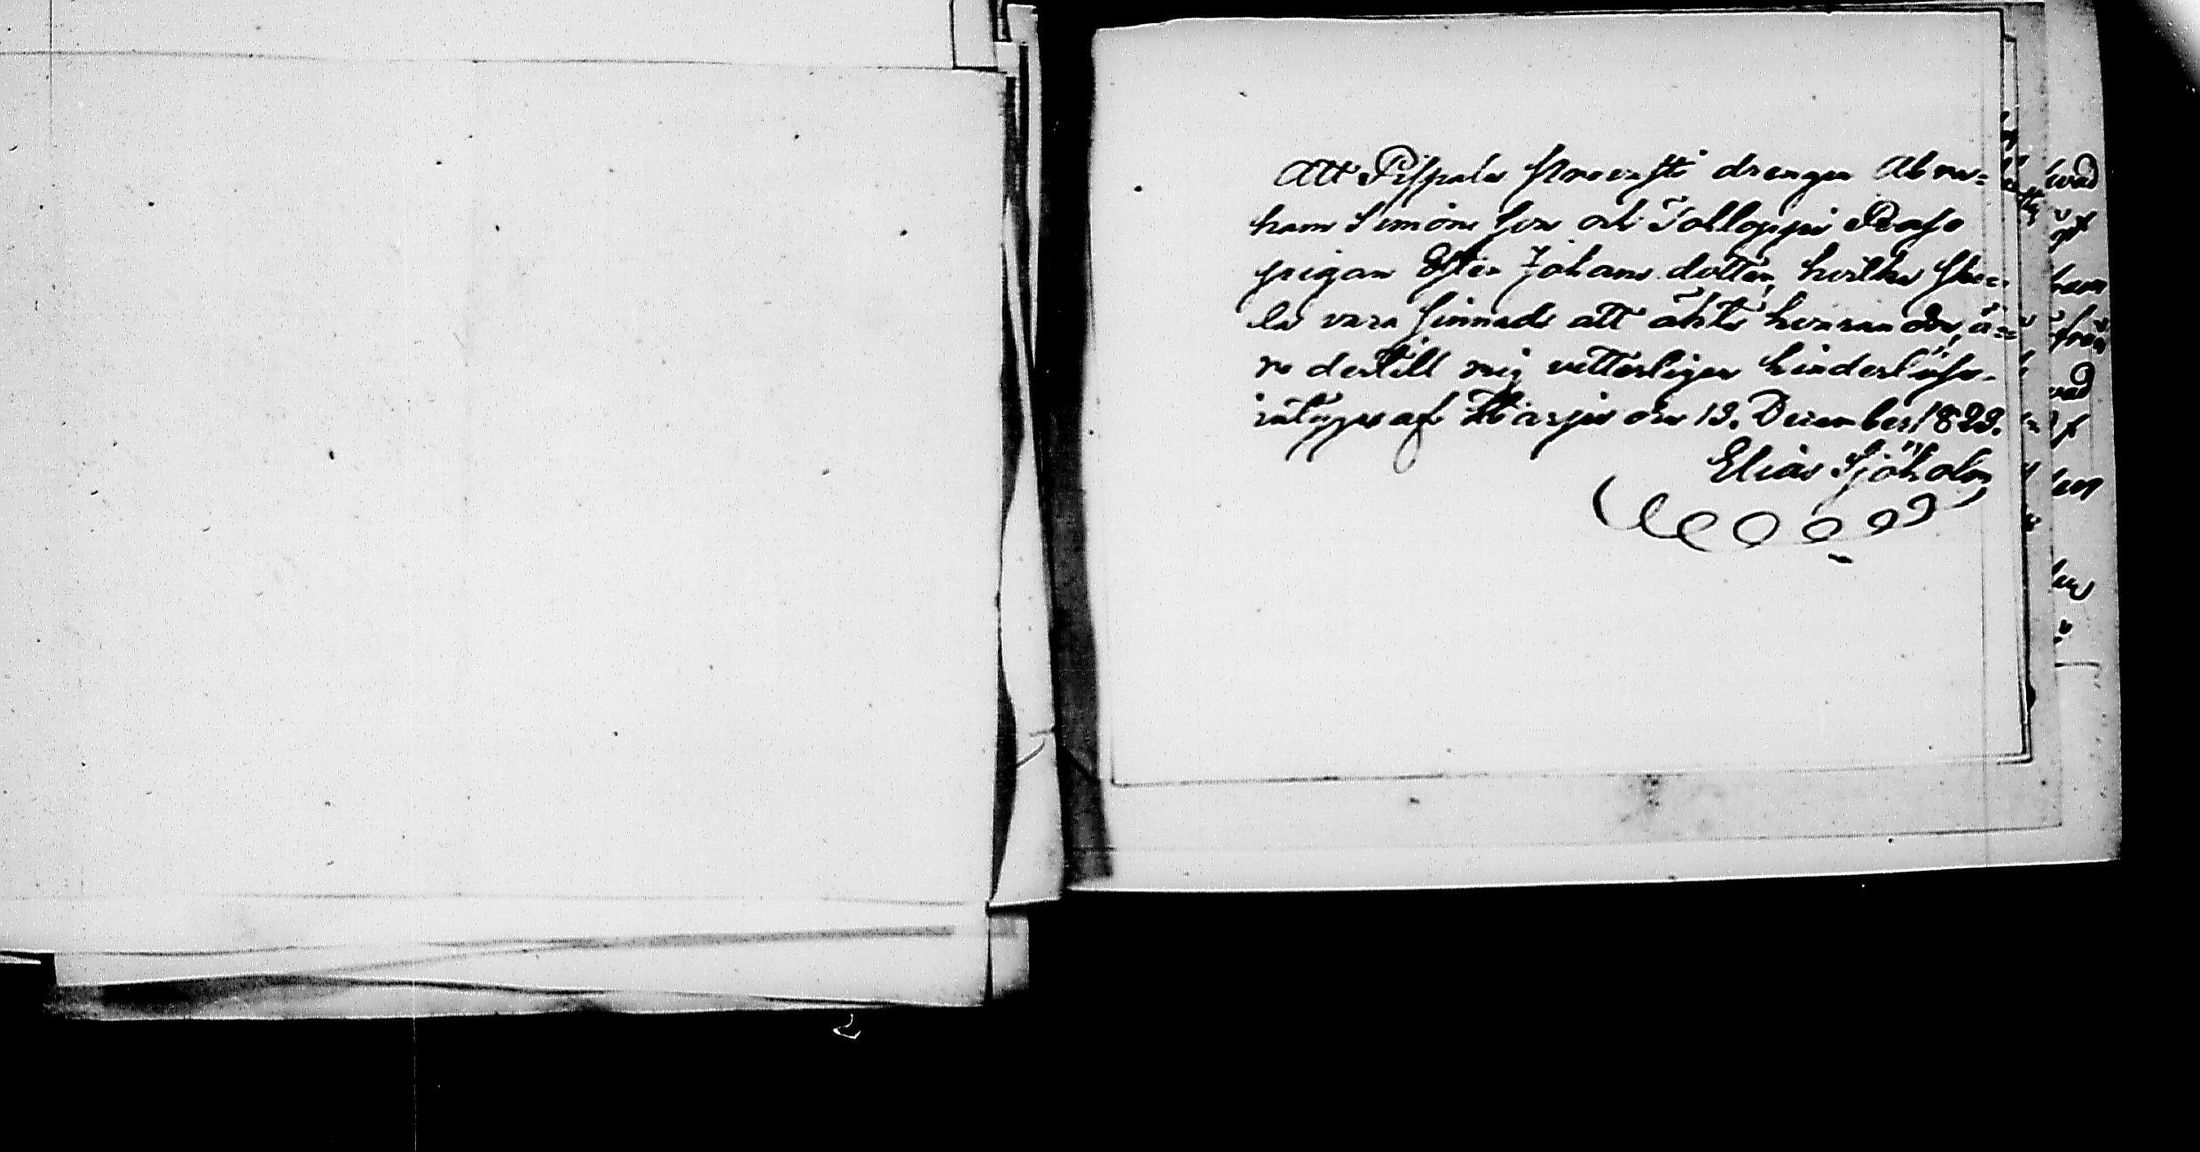 Att Pispala Knovesti drengen Abra=
ham Simons son och Tolloppi Poaso
pigan Ester Johans dotter, hvilka sku=
la vara sinnade att äkta hvarandra, ä=
ro dertill mig vetterligen hinderlöse.
intygas af Harju den 13. December 1829.
Elias Sjöholm
2